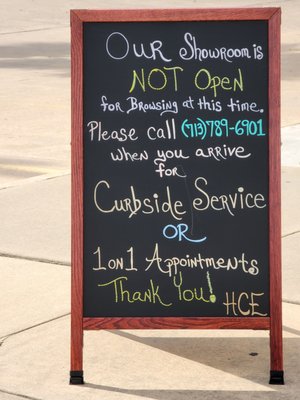 Our Showroom is
NOT Open
for Browsing at this time.
Please call (713)789-6901
when you arrive
for
Curbside Service
OR
1 on 1 Appointments
Thank You!
HCE